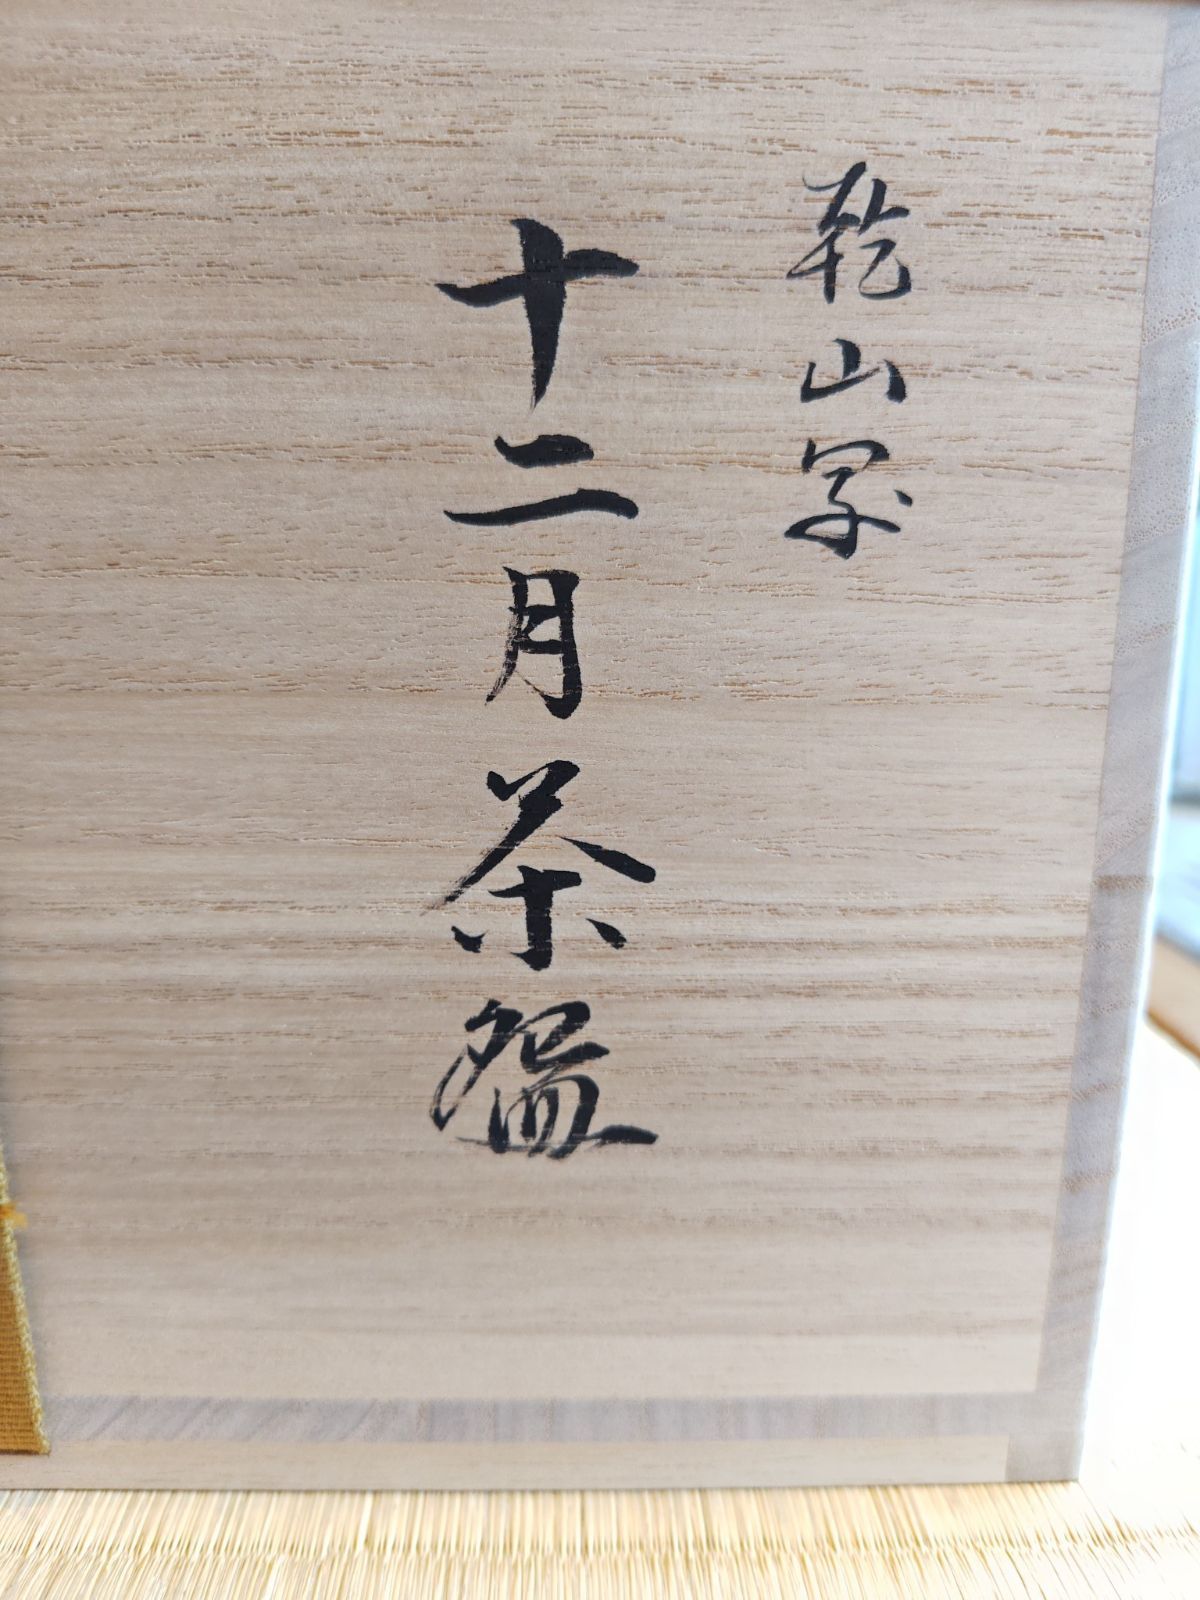 乾山写
十二月茶盌